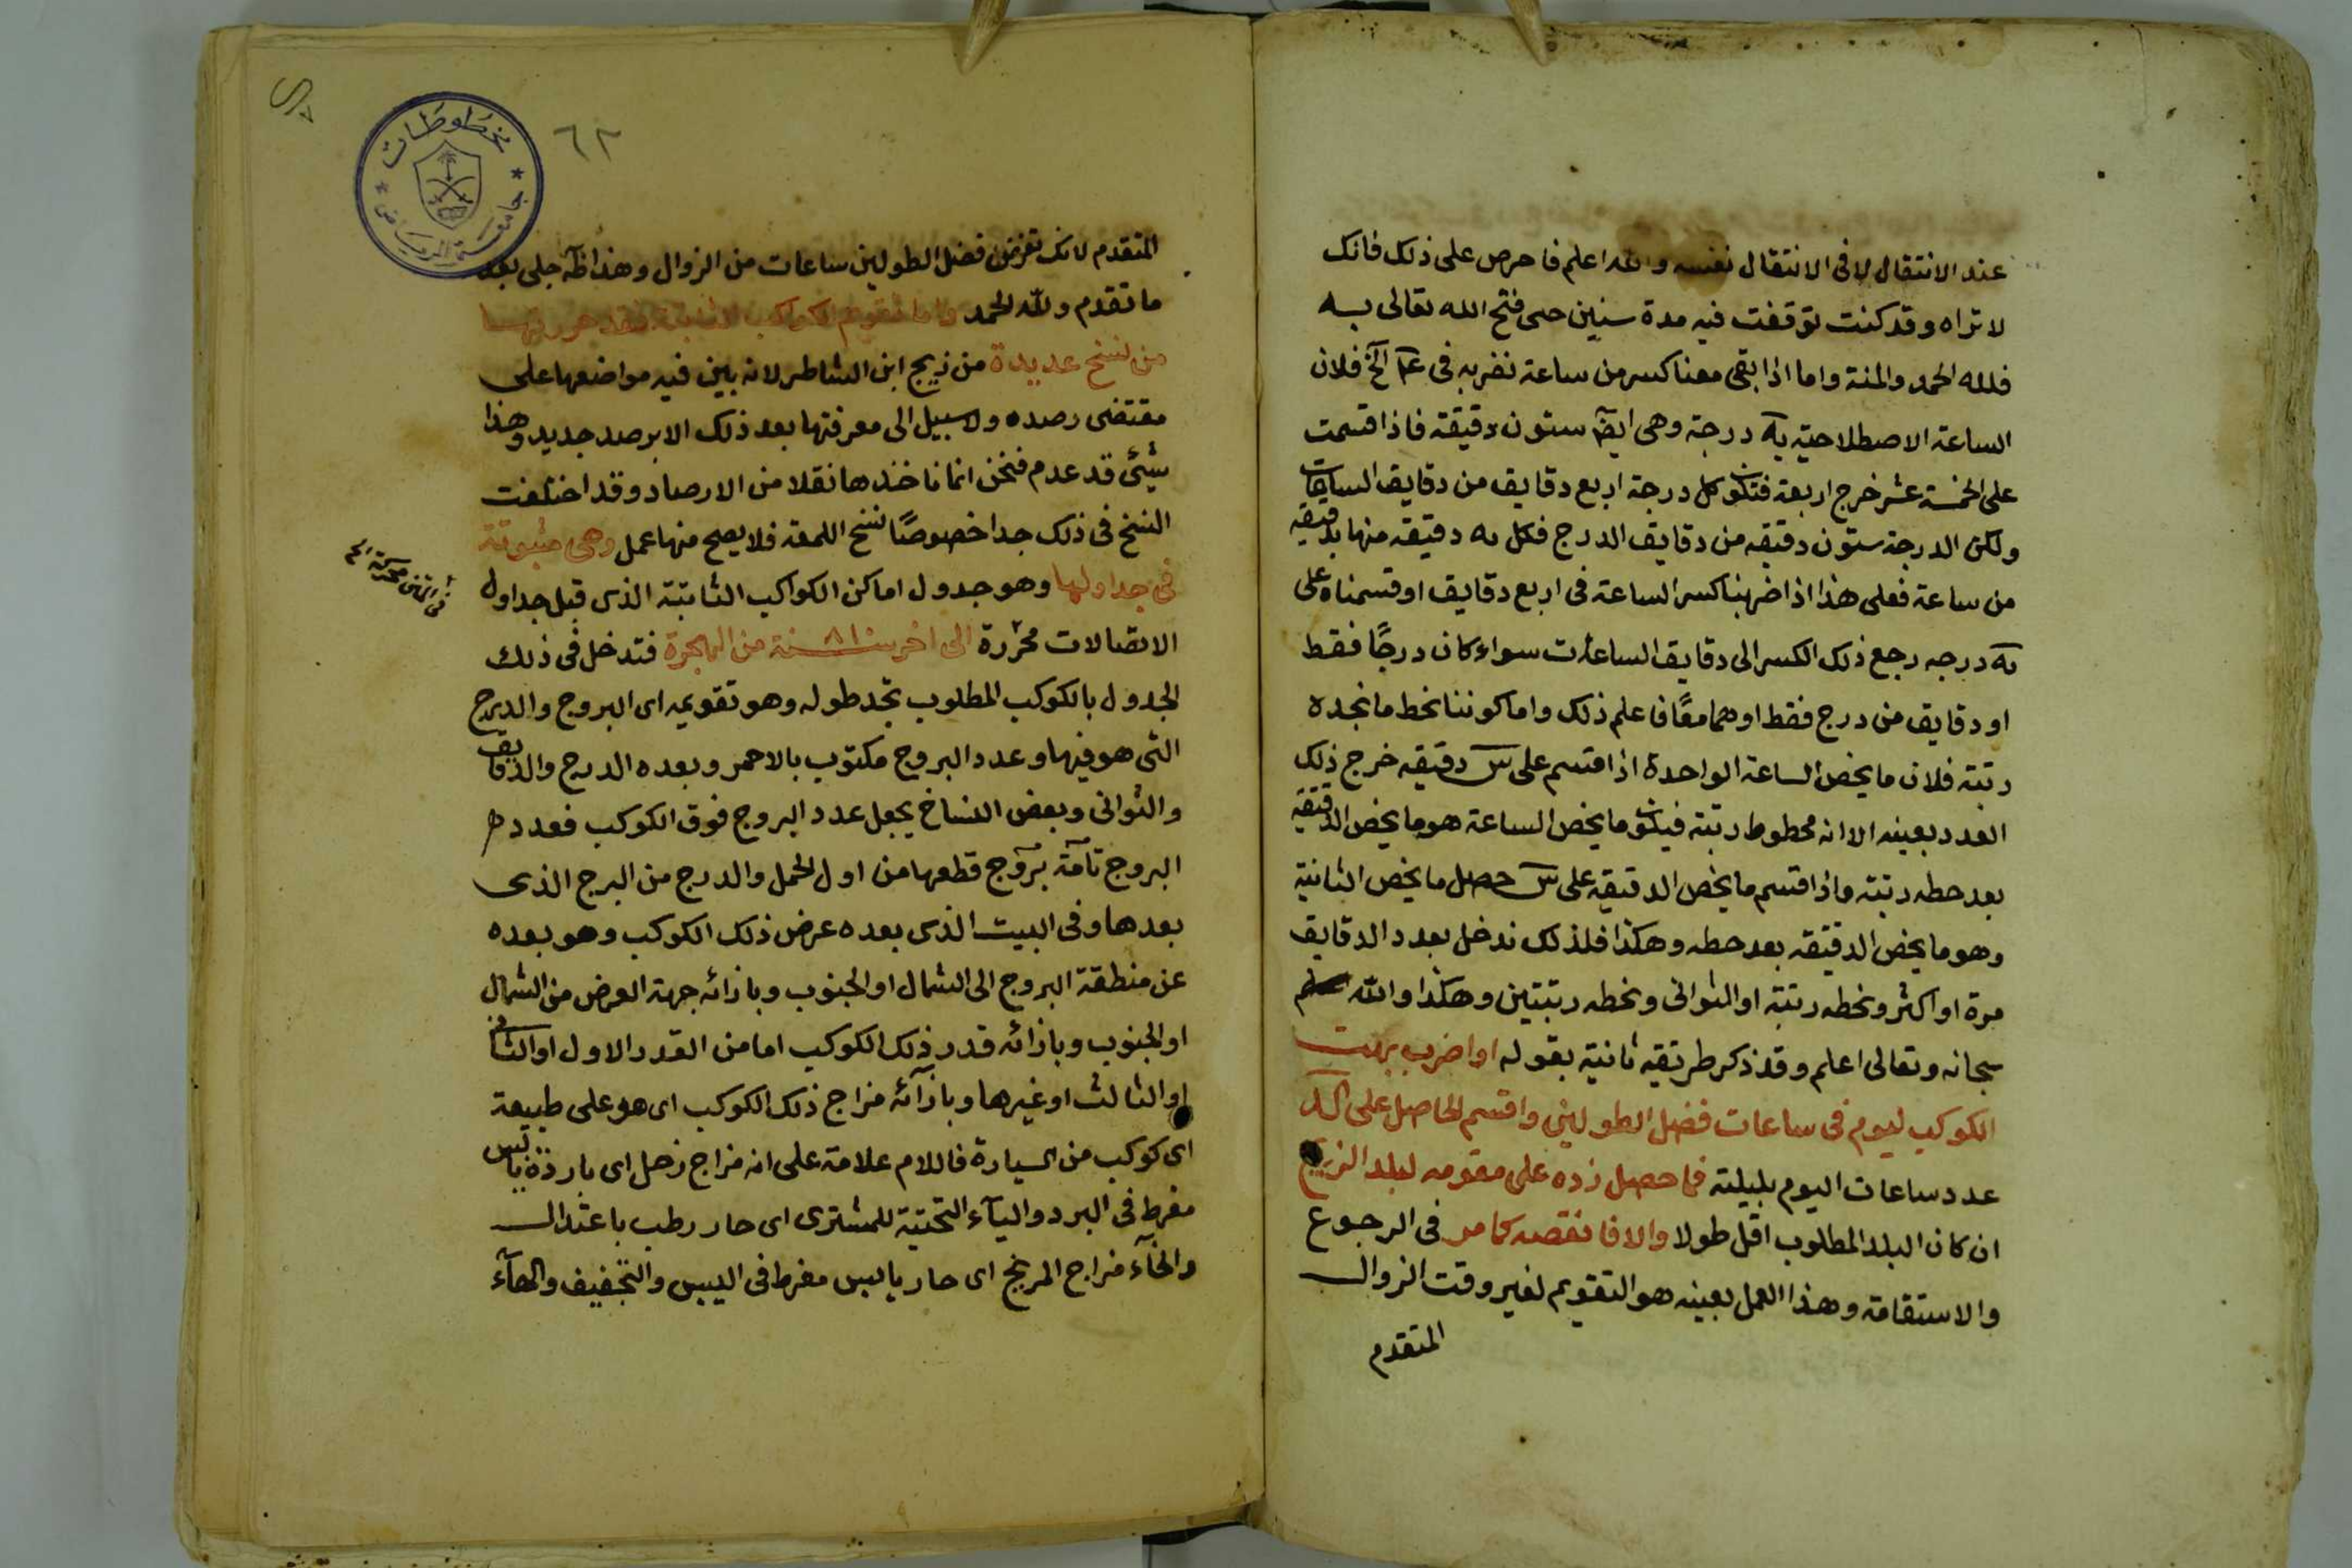 عند الانتقال لا فى الانتقال نفسه والله اعلم فاحرص على ذلك فانك
لا تراه وقد كنت توقفت فيه مدة سنين حتى فتح الله تعالى به
فلله الحمد والمنة واما اذا بقى معنا كسر من ساعة نضربه فى الخ فلان
الساعة الاصطلاحية يه درجة وهى ايضا ستون دقيقة فاذا قسمت
على الخمسة عشر خرج اربعة فتكون كل درجة اربع دقايق من دقايق الساعات
ولكن الدرجة ستون دقيقه من دقايق الدرج فكل يه دقيقه منها بدقيقة
من ساعة فعلى هذا اذا ضربنا كسر الساعة فى اربع دقايق او قسمناه على
يه درجه رجع ذلك الكسر الى دقايق الساعات سواء كان درجًا فقط
او دقايق من درج فقط او هما معًا فاعلم ذلك واما كوننا نحط ما نجده
رتبة فلان ما يخص الساعة الواحدة اذا قسم على س دقيقه خرج ذلك
العدد بعينه الا انه محطوط رتبة فيكون ما يخص الساعة هو ما يخص الدقيقة
بعد حطه رتبة واذا قسم ما يخص الدقيقة على س حصل ما يخص الثانية
وهو ما يخص الدقيقه بعد حطه وهكذا فلذلك ندخل بعدد الدقايق
مرة او اكثر ونحطه رتبة او الثوانى ونحطه رتبتين وهكذا والله
سبحانه وتعالى اعلم وقد ذكر طريقه ثانية بقوله او اضرب بهت
الكوكب ليوم فى ساعات فضل الطولين واقسم الحاصل على كد
عدد ساعات اليوم بليلته فما حصل زده على مقومه لبلد الزيج
ان كان البلد المطلوب اقل طولا والا فانقصه كما مر فى الرجوع
والاستقامة وهذا العمل بعينه هو التقويم لغير وقت الزوال
المتقدم
٦٢
مخطوطات
جامعة الرياض
المتقدم لانك تفرض فضل الطولين ساعات من الزوال وهذا ظاهر جلى بعد
ما تقدم ولله الحمد واما تقويم الكواكب الثابتة فقد حررتها
من نسخ عديدة من زيج ابن الشاطر لانه بين فيه مواضعها على
مقتضى رصده ولا سبيل الى معرفتها بعد ذلك الا برصد جديد وهذا
شيئ قد عدم فنحن انما ناخذها نقلا من الارصاد وقد اختلفت
النسخ فى ذلك جدا خصوصًا نسخ اللمعة فلا يصح منها عمل وهى مثبوتة
فى جداولها وهو جدول اماكن الكواكب الثابتة الذى قبل جداول
الاتصالات محررة الى اخر سنة ٨١٠ سنة من الهجرة فتدخل فى ذلك
الجدول بالكوكب المطلوب تجد طوله وهو تقويمه اى البروج والدرج
التى هو فيها وعدد البروج مكتوب بالاحمر وبعده الدرج والدقايق
والثوانى وبعض النساخ يجعل عدد البروج فوق الكوكب فعدد
البروج تامة بروج قطعها من اول الحمل والدرج من البرج الذى
بعدها وفى البيت الذى بعده عرض ذلك الكوكب وهو بعده
عن منطقة البروج الى الشمال او الجنوب وبازائه جهة العرض من الشمال
او الجنوب وبازائه قدر ذلك الكوكب اما من القدر الاول او الثانى
او الثالث او غيرها وبازآئه مزاج ذلك الكوكب اى هو على طبيعة
اى كوكب من السيارة فاللام علامة على انه مزاج زحل اى بارد يابس
مفرط فى البرد واليآء التحتية للمشترى اى حار رطب باعتدال
والخآء مزاج المريخ اى حار يابس مفرط فى اليبس والتجفيف والهآء